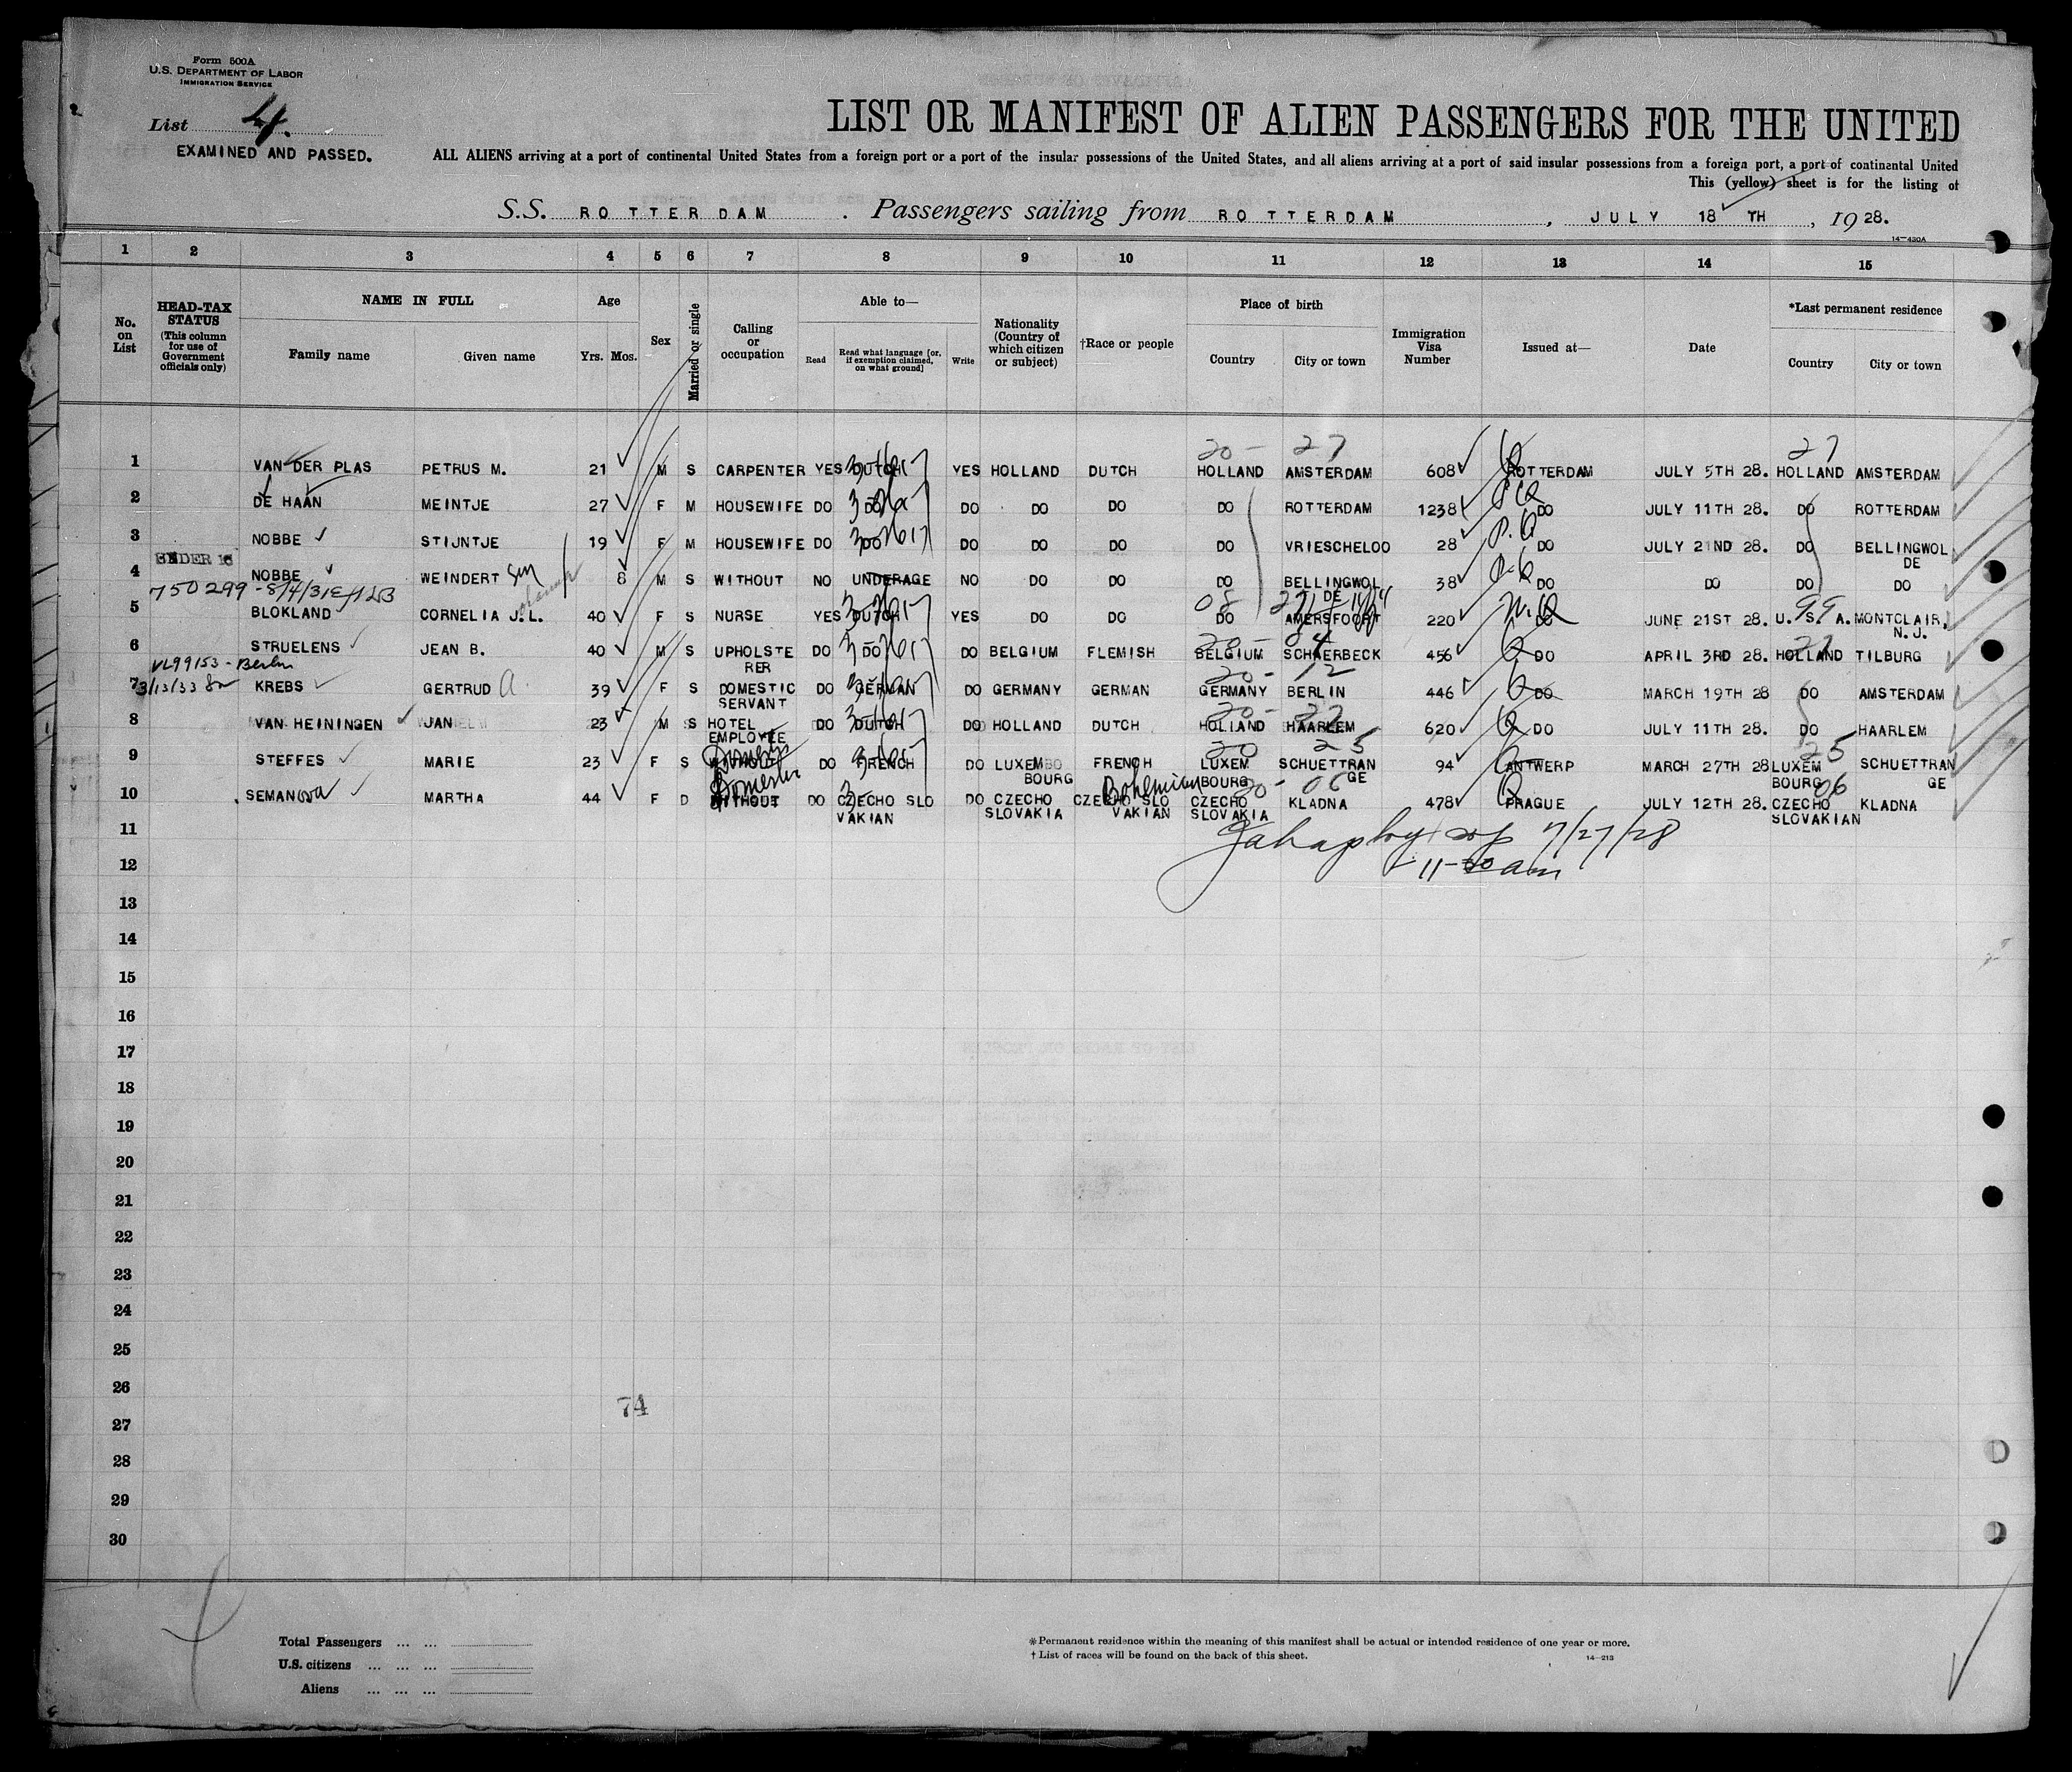 Form 500A
U.S. DEPARTMENT OF LABOR
IMMIGRATION SERVICE
List 4.
EXAMINED AND PASSED.
LIST OR MANIFEST OF ALIEN PASSENGERS FOR THE UNITED
ALL ALIENS arriving at a port of continental United States from a foreign port or a port of the insular possessions of the United States, and all aliens arriving at a port of said insular possessions from a foreign port, a port of continental United
This (yellow) sheet is for the listing of
S.S. ROTTERDAM. Passengers sailing from ROTTERDAM, JULY 18 TH, 1928.
14—430A
1 2 3 4 5 6 7 8 9 10 11 12 13 14 15
No. on List
HEAD-TAX STATUS (This column for use of Government officials only)
NAME IN FULL
Family name Given name
Age
Yrs. Mos.
Sex
Married or single
Calling or occupation
Able to—
Read
Read what language [or, if exemption claimed, on what ground]
Write
Nationality (Country of which citizen or subject)
†Race or people
Place of birth
Country City or town
Immigration Visa Number
Issued at—
Date
*Last permanent residence
Country City or town
20 - 27 27
1 VAN DER PLAS PETRUS M. 21 M S CARPENTER YES DUTCH YES HOLLAND DUTCH HOLLAND AMSTERDAM 608 ROTTERDAM JULY 5TH 28. HOLLAND AMSTERDAM
2 DE HAAN MEINTJE 27 F M HOUSEWIFE DO DO DO DO DO DO ROTTERDAM 1238 DO JULY 11TH 28. DO ROTTERDAM
3 NOBBE STIJNTJE 19 F M HOUSEWIFE DO DO DO DO DO DO VRIESCHELOO 28 DO JULY 2ND 28. DO BELLINGWOL
DE
UNDER 16
4 NOBBE WEINDERT 8 M S WITHOUT NO UNDERAGE NO DO DO DO BELLINGWOL 38 DO DO DO DO
DE
750299 - 8/4/31
5 BLOKLAND CORNELIA J.L. 40 F S NURSE YES DUTCH YES DO DO DO AMERSFOORT 220 DO JUNE 21ST 28. U.S.A. MONTCLAIR,
N.J.
6 STRUELENS JEAN B. 40 M S UPHOLSTE DO DO DO BELGIUM FLEMISH BELGIUM SCHAERBECK 456 DO APRIL 3RD 28. HOLLAND TILBURG
RER
VL99153 - Berlin
3/13/33
7 KREBS GERTRUD A 39 F S DOMESTIC DO GERMAN DO GERMANY GERMAN GERMANY BERLIN 446 DO MARCH 19TH 28 DO AMSTERDAM
SERVANT
8 VAN HEININGEN JAN 23 M S HOTEL DO DUTCH DO HOLLAND DUTCH HOLLAND HAARLEM 620 DO JULY 11TH 28. DO HAARLEM
EMPLOYEE
9 STEFFES MARIE 23 F S WITHOUT DO FRENCH DO LUXEM FRENCH LUXEM SCHUETTRAN 94 ANTWERP MARCH 27TH 28 LUXEM SCHUETTRAN
BOURG BOURG GE BOURG GE
Domestic Bohemian
10 SEMANova MARTHA 44 F D WITHOUT DO CZECHO SLO DO CZECHO CZECHO SLO CZECHO KLADNA 478 PRAGUE JULY 12TH 28. CZECHO KLADNA
VAKIAN SLOVAKIA VAKIAN SLOVAKIA SLOVAKIAN
11
7/27/28
12
11-30 am
13
14
15
16
17
18
19
20
21
22
23
24
25
26
74
27
28
29
30
Total Passengers ... ...
U.S. citizens ... ... ...
Aliens ... ... ...
*Permanent residence within the meaning of this manifest shall be actual or intended residence of one year or more.
† List of races will be found on the back of this sheet.
14—213